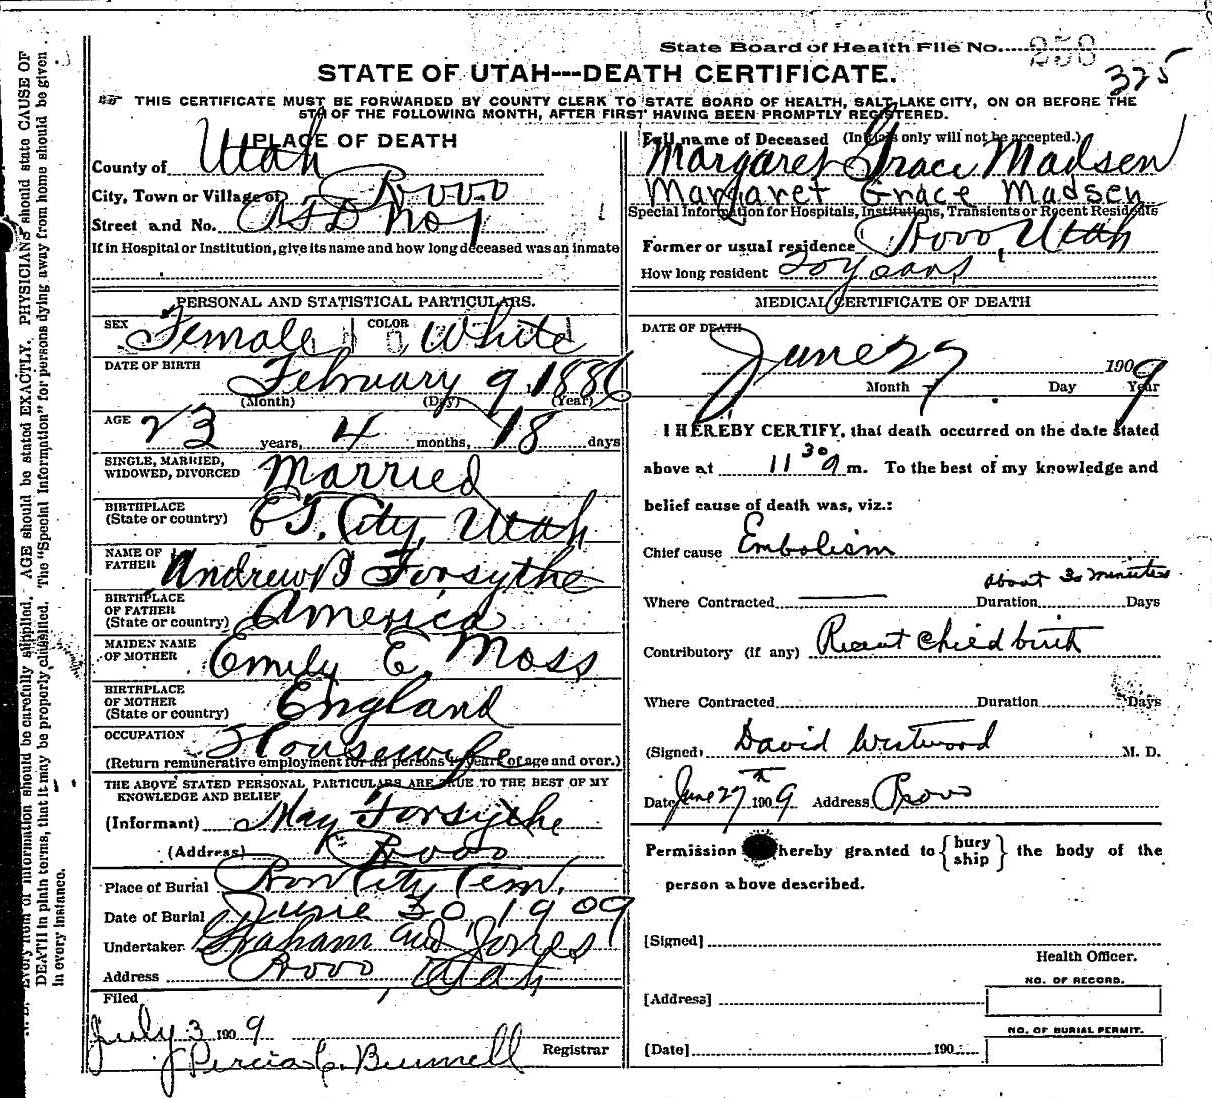 State Board of Health File No. 258
325
STATE OF UTAH---DEATH CERTIFICATE.
THIS CERTIFICATE MUST BE FORWARDED BY COUNTY CLERK TO STATE BOARD OF HEALTH, SALT LAKE CITY, ON OR BEFORE THE
5TH OF THE FOLLOWING MONTH, AFTER FIRST HAVING BEEN PROMPTLY REGISTERED.
PLACE OF DEATH
County of Utah
City, Town or Village of Provo
Street and No. RFD No 1
If in Hospital or Institution, give its name and how long deceased was an inmate
PERSONAL AND STATISTICAL PARTICULARS.
SEX Female COLOR White
DATE OF BIRTH February 9, 1886
(Month) (Day) (Year)
AGE 23 years, 4 months, 18 days
SINGLE, MARRIED,
WIDOWED, DIVORCED Married
BIRTHPLACE
(State or country) City, Utah
NAME OF
FATHER Andrew Forsythe
BIRTHPLACE
OF FATHER
(State or country) America
MAIDEN NAME
OF MOTHER Emily E. Moss
BIRTHPLACE
OF MOTHER
(State or country) England
OCCUPATION Housewife
(Return remunerative employment for all persons years of age and over.)
THE ABOVE STATED PERSONAL PARTICULARS ARE TRUE TO THE BEST OF MY
KNOWLEDGE AND BELIEF
(Informant) May Forsythe
(Address) Provo
Place of Burial Provo City Cem.
Date of Burial June 30 1909
Undertaker Graham and Jones
Address Provo, Utah
Filed
July 3 1909
Bunnell Registrar
Full name of Deceased (Initials only will not be accepted.)
Margaret Grace Madsen
Margaret Grace Madsen
Special Information for Hospitals, Institutions, Transients or Recent Residents
Former or usual residence Provo, Utah
How long resident 20 years
MEDICAL CERTIFICATE OF DEATH
DATE OF DEATH
June 27 1909
Month Day Year
I HEREBY CERTIFY, that death occurred on the date stated
above at 11 30 a m. To the best of my knowledge and
belief cause of death was, viz.:
Chief cause Embolism
about 30 minutes
Where Contracted Duration Days
Contributory (if any) Recent childbirth
Where Contracted Duration Days
(Signed) David Westwood M. D.
Date June 27th 1909 Address Provo
Permission hereby granted to {bury ship} the body of the
person above described.
[Signed]
Health Officer.
NO. OF RECORD.
[Address]
NO. OF BURIAL PERMIT.
[Date] 190
Every item of information should be carefully supplied. AGE should be stated EXACTLY. PHYSICIANS should state CAUSE OF
DEATH in plain terms, that it may be properly classified. The "Special Information" for persons dying away from home should be given
in every instance.